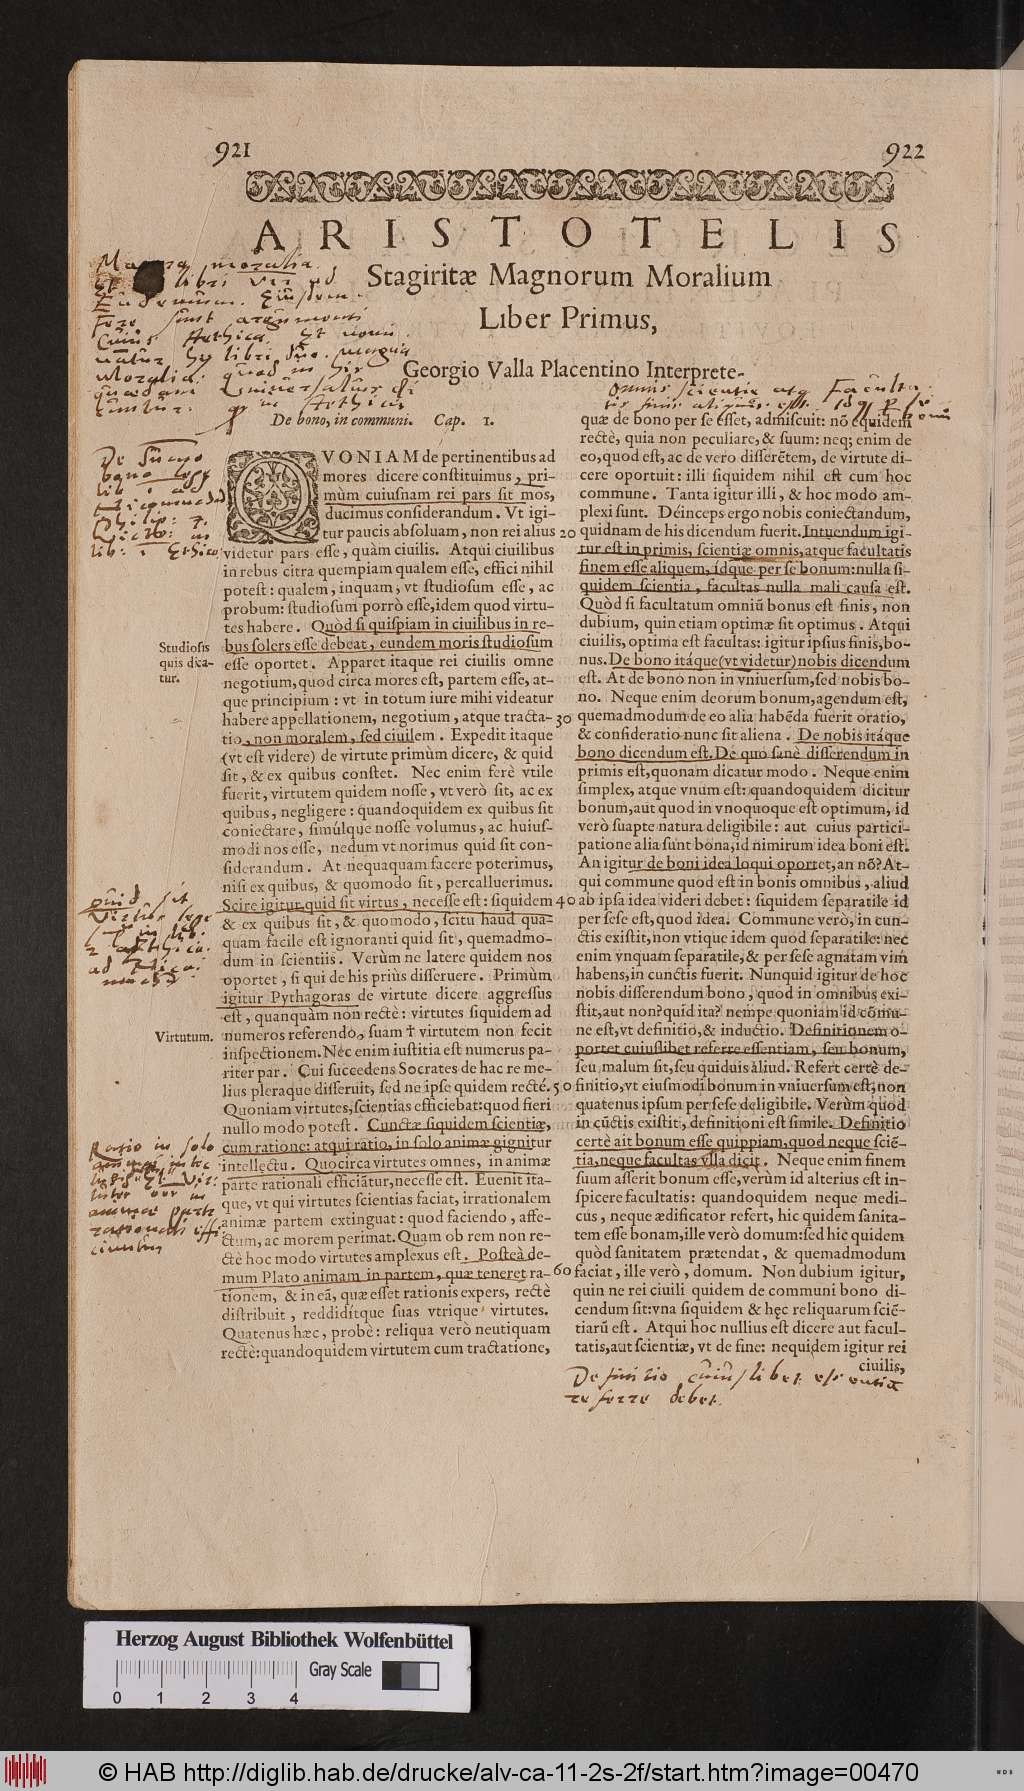 921
922
ARISTOTELIS
Stagiritæ Magnorum Moralium
Liber Primus,
Georgio Valla Placentino Interprete.
Magna moralia
libri
Eudemium. Eiusdem
Fere sunt argumenti
Cuius Aethica. Et
libri duo. magna
Moralia: quod in his
quædam Universalius di
cuntur. in Aethicis
De bono, in communi. Cap. 1.
De Summo
bono lege
lib 1 ad
Nicomached
lib: 1 Ethico
QVONIAM de pertinentibus ad
mores dicere constituimus, pri-
mùm cuiusnam rei pars sit mos,
ducimus considerandum. Vt igi-
tur paucis absoluam, non rei alius
videtur pars esse, quàm ciuilis. Atqui ciuilibus
in rebus citra quempiam qualem esse, effici nihil
potest: qualem, inquam, vt studiosum esse, ac
probum: studiosum porrò esse, idem quod virtu-
tes habere. Quòd si quispiam in ciuilibus in re-
bus solers esse debeat, eundem moris studiosum
esse oportet. Apparet itaque rei ciuilis omne
negotium, quod circa mores est, partem esse, at-
que principium: vt in totum iure mihi videatur
habere appellationem, negotium, atque tracta-
tio, non moralem, sed ciuilem. Expedit itaque
(vt est videre) de virtute primùm dicere, & quid
sit, & ex quibus constet. Nec enim ferè vtile
fuerit, virtutem quidem nosse, vt verò sit, ac ex
quibus, negligere: quandoquidem ex quibus sit
coniectare, simúlque nosse volumus, ac huius-
modi nos esse, nedum vt norimus quid sit con-
siderandum. At nequaquam facere poterimus,
nisi ex quibus, & quomodo sit, percalluerimus.
Scire igitur quid sit virtus, necesse est: siquidem
& ex quibus sit, & quomodo, scitu haud qua-
quam facile est ignoranti quid sit, quemadmo-
dum in scientiis. Verùm ne latere quidem nos
oportet, si qui de his priùs disseruere. Primùm
igitur Pythagoras de virtute dicere aggressus
est, quanquàm non rectè: virtutes siquidem ad
numeros referendo, suam † virtutem non fecit
inspectionem. Nec enim iustitia est numerus pa-
riter par. Cui succedens Socrates de hac re me-
lius pleraque disseruit, sed ne ipse quidem rectè.
Quoniam virtutes, scientias efficiebat: quod fieri
nullo modo potest. Cunctæ siquidem scientiæ,
cum ratione: atqui ratio, in solo animæ gignitur
intellectu. Quocirca virtutes omnes, in animæ
parte rationali efficiātur, necesse est. Euenit ita-
que, vt qui virtutes scientias faciat, irrationalem
animæ partem extinguat: quod faciendo, affe-
ctum, ac morem perimat. Quam ob rem non re-
ctè hoc modo virtutes amplexus est. Posteà de-
mum Plato animam in partem, quæ teneret ra-
tionem, & in eā, quæ esset rationis expers, rectè
distribuit, reddidítque suas vtrique virtutes.
Quatenus hæc, probè: reliqua verò neutiquam
rectè: quandoquidem virtutem cum tractatione,
Studiosis
quis dica-
tur.
quid sit
Virtus lege
Virtutum.
Ratio in solo
animæ parte
rationali effi
ciuntur
20
30
40
50
60
omnis scientiæ atq Faculta
tis finis aliquis est.
quæ de bono per se esset, admiscuit: nō equidem
rectè, quia non peculiare, & suum: neq; enim de
eo, quod est, ac de vero disserētem, de virtute di-
cere oportuit: illi siquidem nihil est cum hoc
commune. Tanta igitur illi, & hoc modo am-
plexi sunt. Déinceps ergo nobis coniectandum,
quidnam de his dicendum fuerit. Intuendum igi-
tur est in primis, scientiæ omnis, atque facultatis
finem esse aliquem, ídque per se bonum: nulla si-
quidem scientia, facultas nulla mali causa est.
Quòd si facultatum omniū bonus est finis, non
dubium, quin etiam optimæ sit optimus. Atqui
ciuilis, optima est facultas: igitur ipsius finis, bo-
nus. De bono itáque (vt videtur) nobis dicendum
est. At de bono non in vniuersum, sed nobis bo-
no. Neque enim deorum bonum, agendum est,
quemadmodum de eo alia habēda fuerit oratio,
& consideratio nunc sit aliena. De nobis itáque
bono dicendum est. De quo sanè disserendum in
primis est, quonam dicatur modo. Neque enim
simplex, atque vnum est: quandoquidem dicitur
bonum, aut quod in vnoquoque est optimum, id
verò suapte natura deligibile: aut cuius partici-
patione alia sunt bona, id nimirum idea boni est.
An igitur de boni idea loqui oportet, an nō? At-
qui commune quod est in bonis omnibus, aliud
ab ipsa idea videri debet: siquidem separatile id
per sese est, quod idea. Commune verò, in cun-
ctis existit, non vtique idem quod separatile: nec
enim vnquam separatile, & per sese agnatam vim
habens, in cunctis fuerit. Nunquid igitur de hoc
nobis disserendum bono, quod in omnibus exi-
stit, aut non? quid ita? nempe quoniam id cōmu-
ne est, vt definitio, & inductio. Definitionem o-
portet cuiuslibet referre essentiam, seu bonum,
seu malum sit, seu quiduis aliud. Refert certè de-
finitio, vt eiusmodi bonum in vniuersum est, non
quatenus ipsum per sese deligibile. Verùm quod
in cūctis existit, definitioni est simile. Definitio
certè ait bonum esse quippiam, quod neque sciē-
tia, neque facultas vlla dicit. Neque enim finem
suum asserit bonum esse, verùm id alterius est in-
spicere facultatis: quandoquidem neque medi-
cus, neque ædificator refert, hic quidem sanita-
tem esse bonam, ille verò domum: sed hic quidem
quòd sanitatem prætendat, & quemadmodum
faciat, ille verò, domum. Non dubium igitur,
quin ne rei ciuili quidem de communi bono di-
cendum sit: vna siquidem & hęc reliquarum sciē-
tiarū est. Atqui hoc nullius est dicere aut facul-
tatis, aut scientiæ, vt de fine: nequidem igitur rei
ciuilis,
Definitio cuiuslibet essentiā
referre debet.
Herzog August Bibliothek Wolfenbüttel
Gray Scale
0 1 2 3 4
© HAB http://diglib.hab.de/drucke/alv-ca-11-2s-2f/start.htm?image=00470